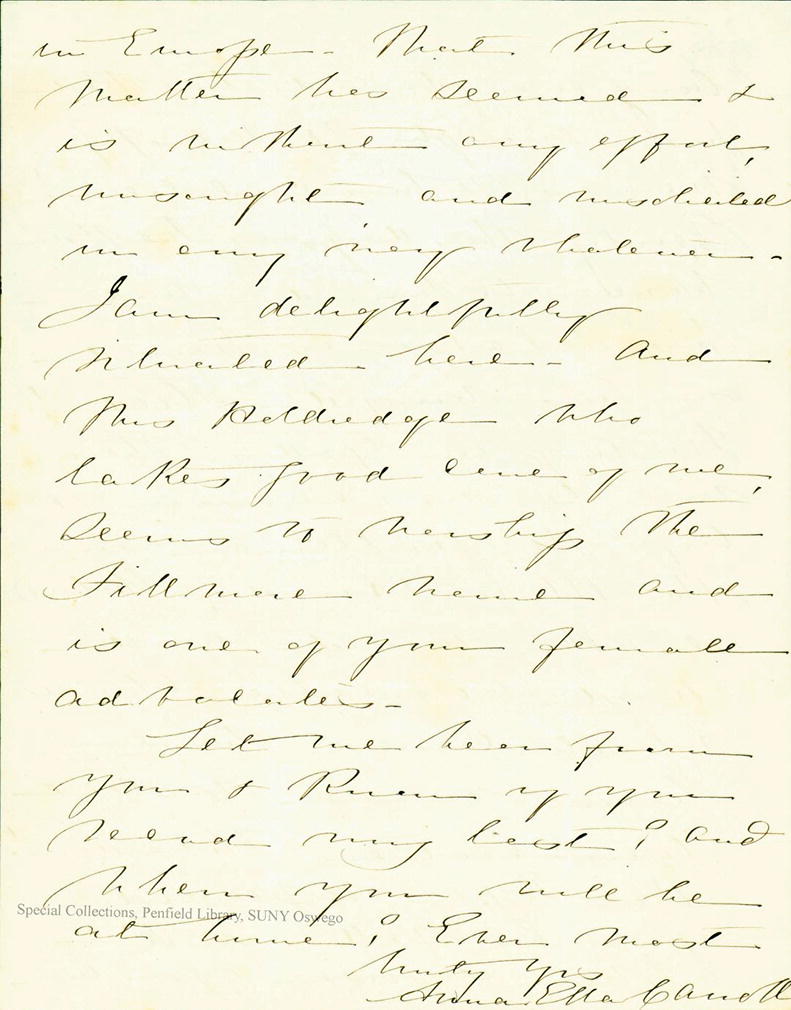 in Europe - That this
matter has seemed &
is without any effort,
unsought and unsolicited
in any way whatever -
I am delightfully
situated here - And
Mrs Holdredge who
takes good care of me,
seems to worship the
Fillmore name and
is one of your female
advocates -
Let me hear from
you & know if you
recd my last? And
when you will be
at home? Ever most
truly yrs
Anna Ella Carroll
Special Collections, Penfield Library, SUNY Oswego